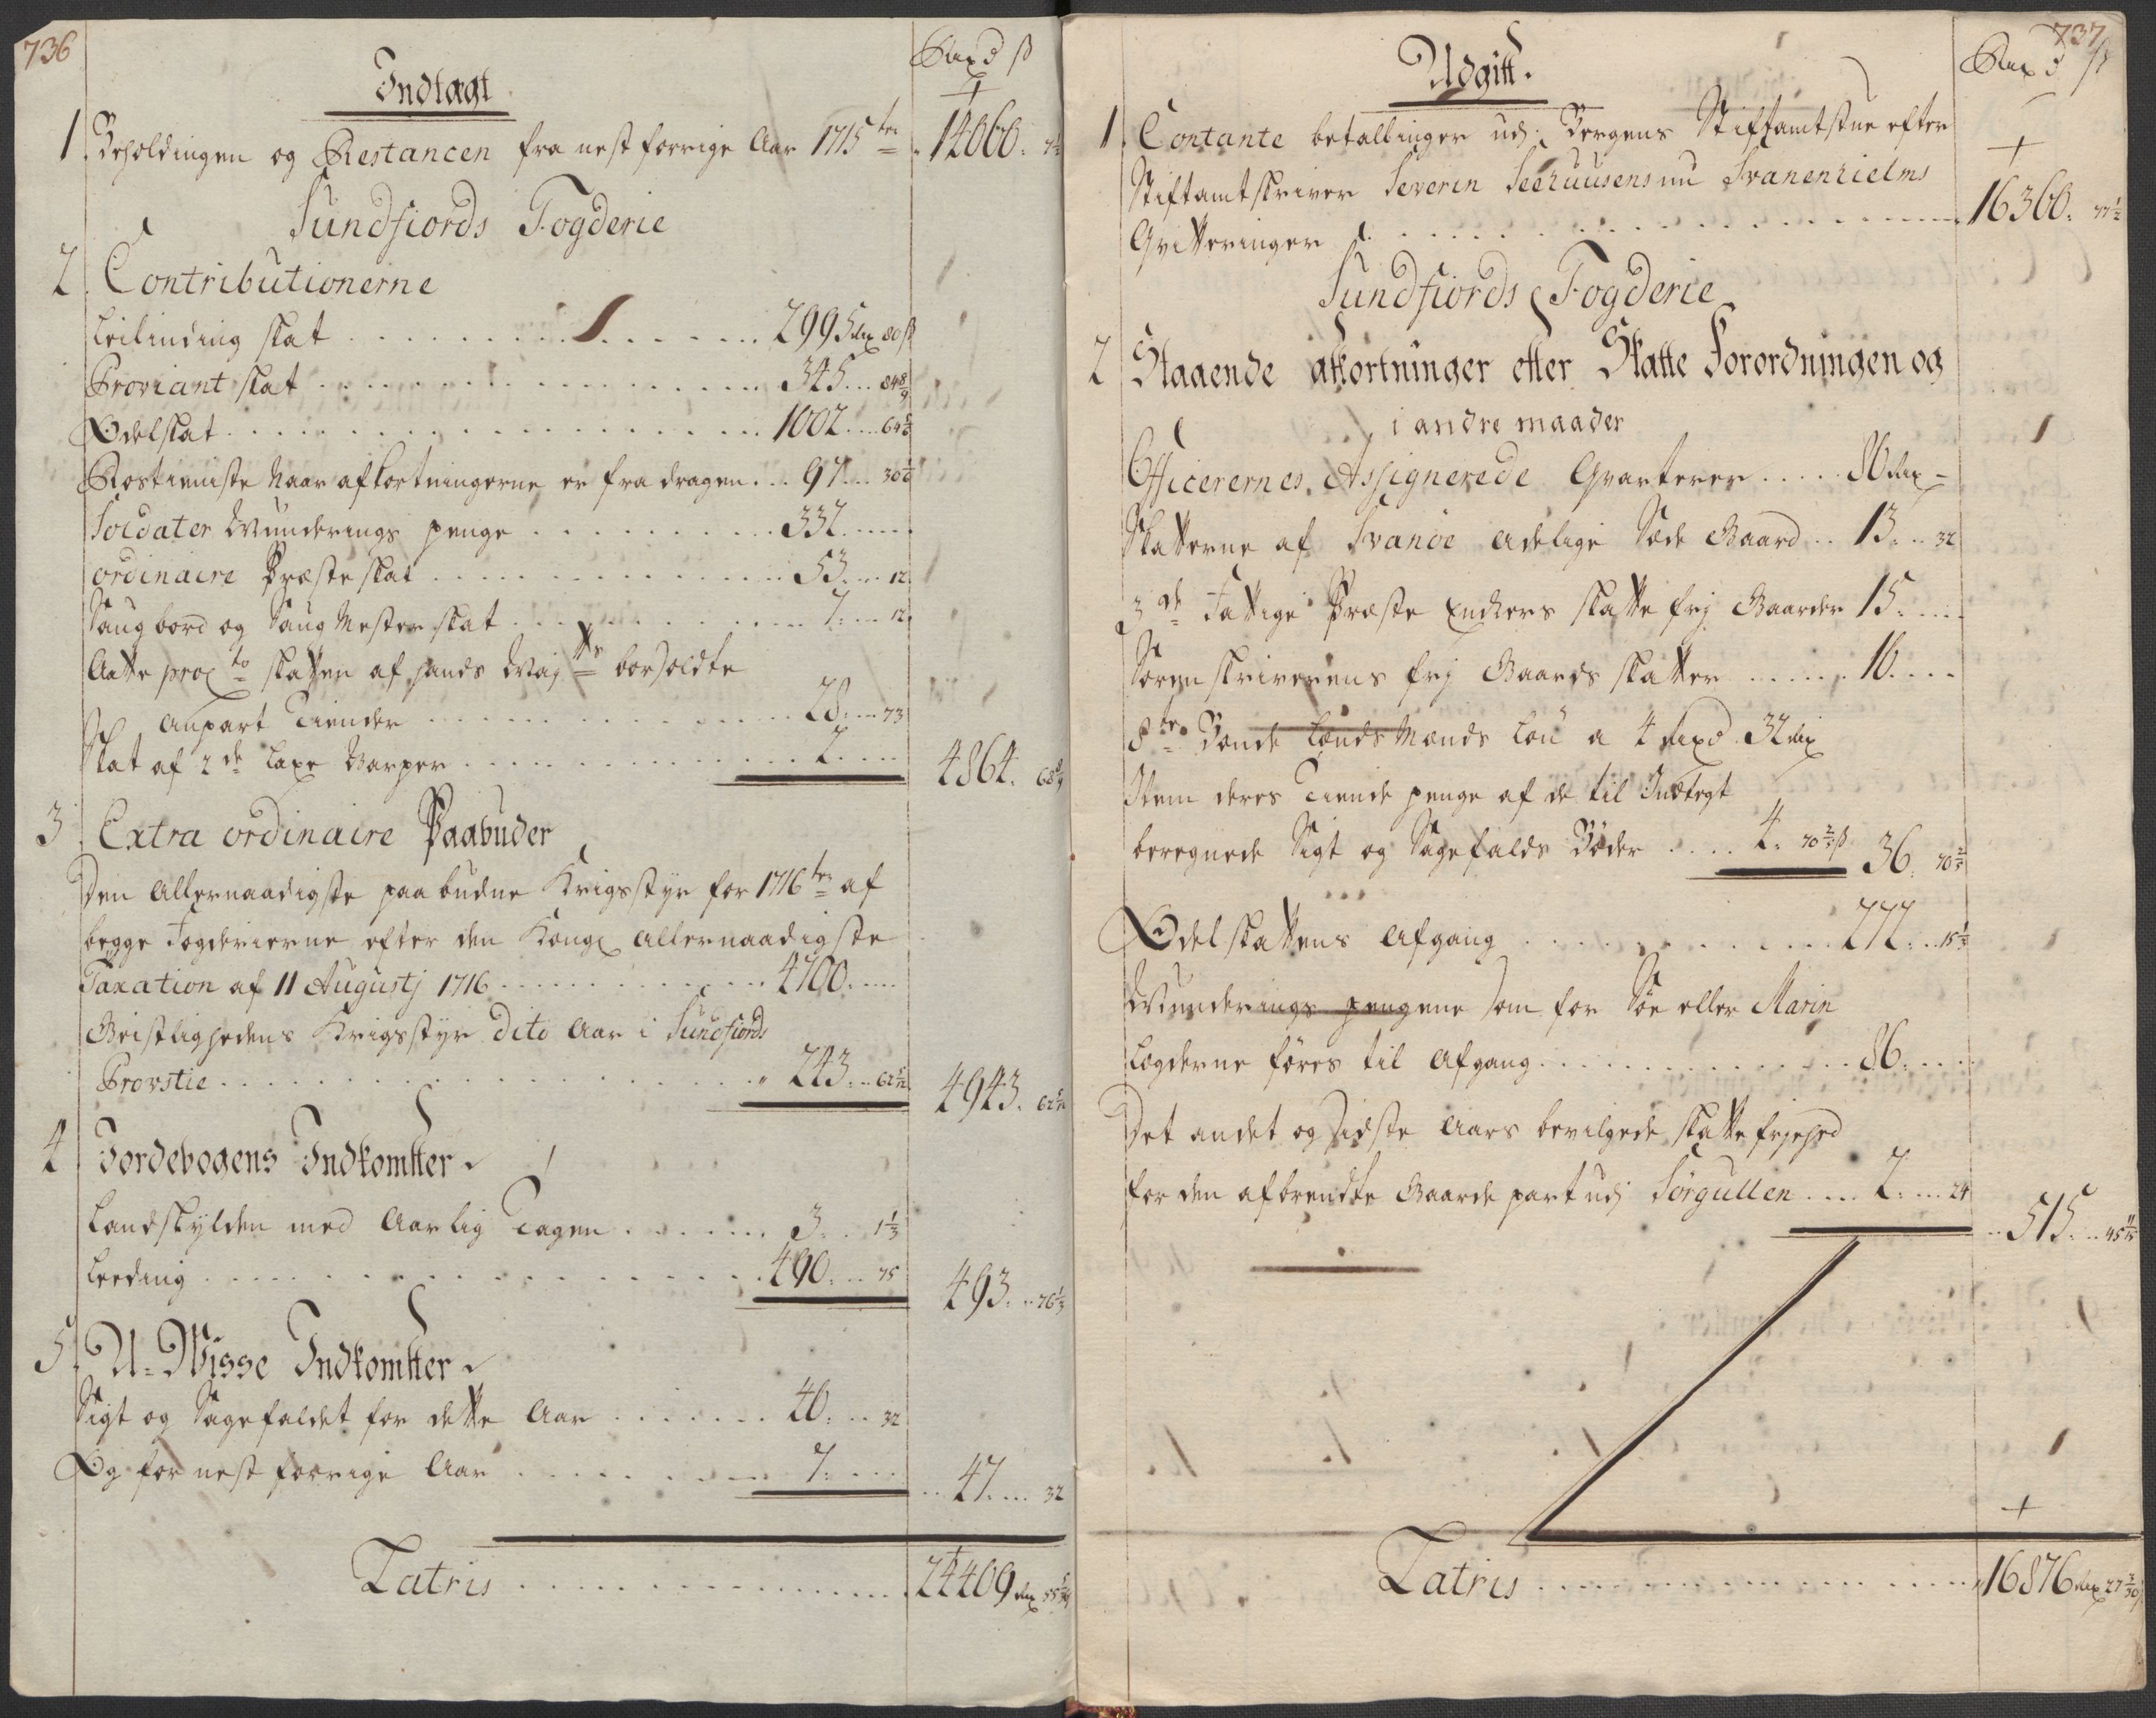 736
Rixd ß
Indtægt
1. Beholdingen og Restancen fra nest forrige Aar 1715 ten 14060.
Sundfiords Fogderie
2. Contributionerne
Leilinding skat . . . 2995 rix 80 ß
Proviant skat . . . 345 .. 84 8/9
Odelskat . . . 1002 .. 64
Rostieniste naar afkortningerne er fradragen . . 97 .. 30
Soldater Munderings penge . . . 332 ..
ordinaire Præste skat . . . 53 .. 12
Saugbord og Saug Mester skat . . . 7 .. 12
Aatte pro Cto skatten af hands Maj ts beholdte
anpart Tiender . . . 28 .. 73
Skat af 2 de Laxe Varper . . . 2 .. 4864. 68
3 Extra ordinaire Paabuder
Den Allernaadigste paabudne Krigsstyr for 1716 ten af
begge Fogderierne efter den Kongl Allernaadigste
Taxation af 11 Augustj 1716 . . . 4700. ..
Geistlighedens Krigsstyr dito Aar i Sundfiords
Provstie . . . 243 .. 62 4943. 62
4 Jordebogens Indkomster
Landskylden med Aarlig Tagen . . . 3 .. 1 1/3
Leeding . . . 490 .. 75 493 .. 76 1/3
5. U-Wisse Indkomster
Sigt og Sagefaldet for dette Aar . . . 40 .. 32
Og for nest forrige Aar . . . 7 .. 47 .. 32
Latris . . . 24409 rix 55
737
Rixd ß
Udgift.
1. Contante betallinger udj Bergens Stiftamtstue efter
Stiftamtskriver Severin Seehuusens nu Svanenhielms
Qvitteringer . . . 16360. 77 1/2
Sundfiords Fogderie
2 Staaende afkortninger efter Skatte Forordningen og
i andre maader
Officerernes Assignerede Qvarterer . . . 80 rix -
Skatterne af Svanöe adelige Sæde Gaard .. 13 .. 32
3 de Fattige Præste Enchers skatte frj Gaarder 15. ..
Sorenskriverens frj Gaards skatter . . . 16. ..
8 te Bonde Lænds Mænds Løn a 4 rixd. 32 rix
Item deres Tiende penge af de til Indtegt
beregnede Sigt og Sagefalds Bøder . . . 4. 70 2/5 ß 36. 70 2/5
Odelskattens Afgang . . . 272 .. 15 1/3
Munderings pengene som for Söe eller Marin
Lægderne føres til Afgang . . . 86. ..
Det andet og sidste Aars bevilgede skatte frihed
for den afbrendte Gaarde part udj Sörgullen . . . 2 .. 24
.. 515 .. 45 11/15
Latris . . . 16876 rix 27 7/30 ß